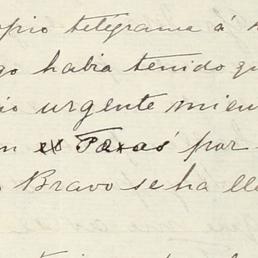 opio telegrama á
go habia tenido qu
io urgente mien
n en Texas por
Bravo se ha lle